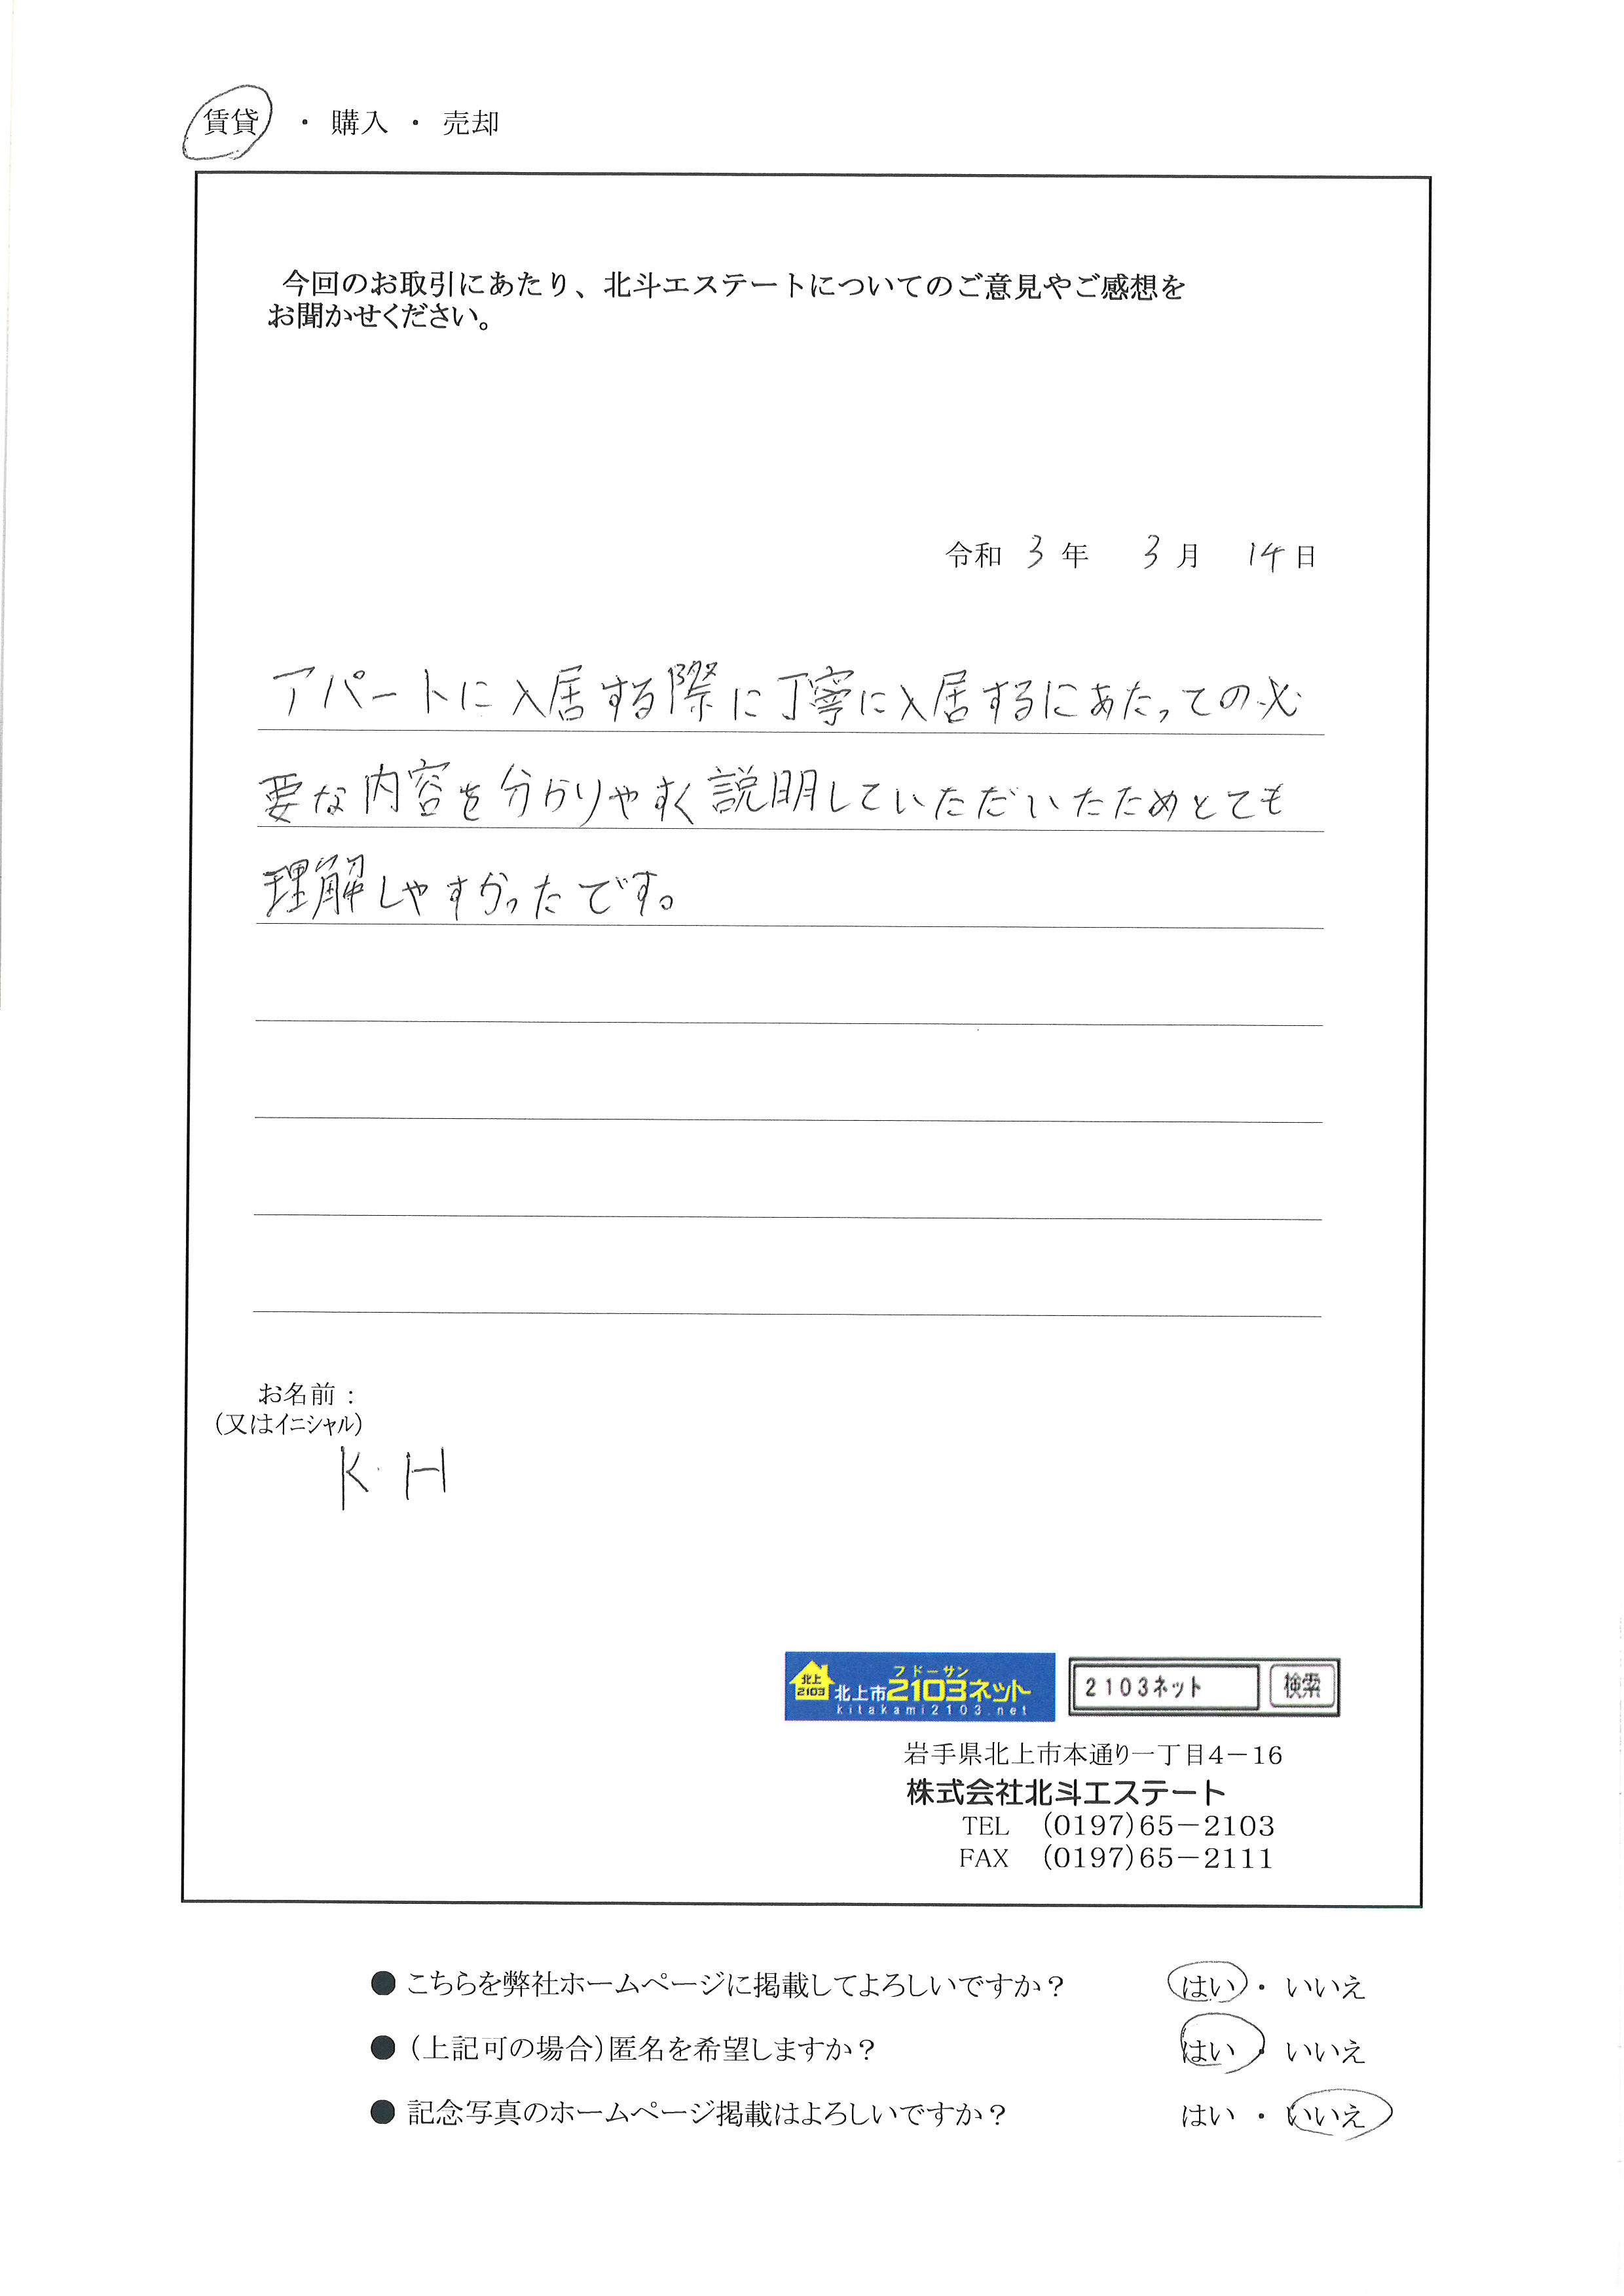 賃貸 ・ 購入 ・ 売却
今回のお取引にあたり、北斗エステートについてのご意見やご感想を
お聞かせください。
令和 3 年 3 月 14 日
アパートに入居する際に丁寧に入居するにあたっての必
要な内容を分かりやすく説明していただいたためとても
理解しやすかったです。
お名前：
（又はイニシャル）
K・H
北上
2103
フドーサン
北上市2103ネット
kitakami2103.net
2103ネット 検索
岩手県北上市本通り一丁目4－16
株式会社北斗エステート
TEL （0197）65－2103
FAX （0197）65－2111
● こちらを弊社ホームページに掲載してよろしいですか？ はい ・ いいえ
● （上記可の場合）匿名を希望しますか？ はい ・ いいえ
● 記念写真のホームページ掲載はよろしいですか？ はい ・ いいえ